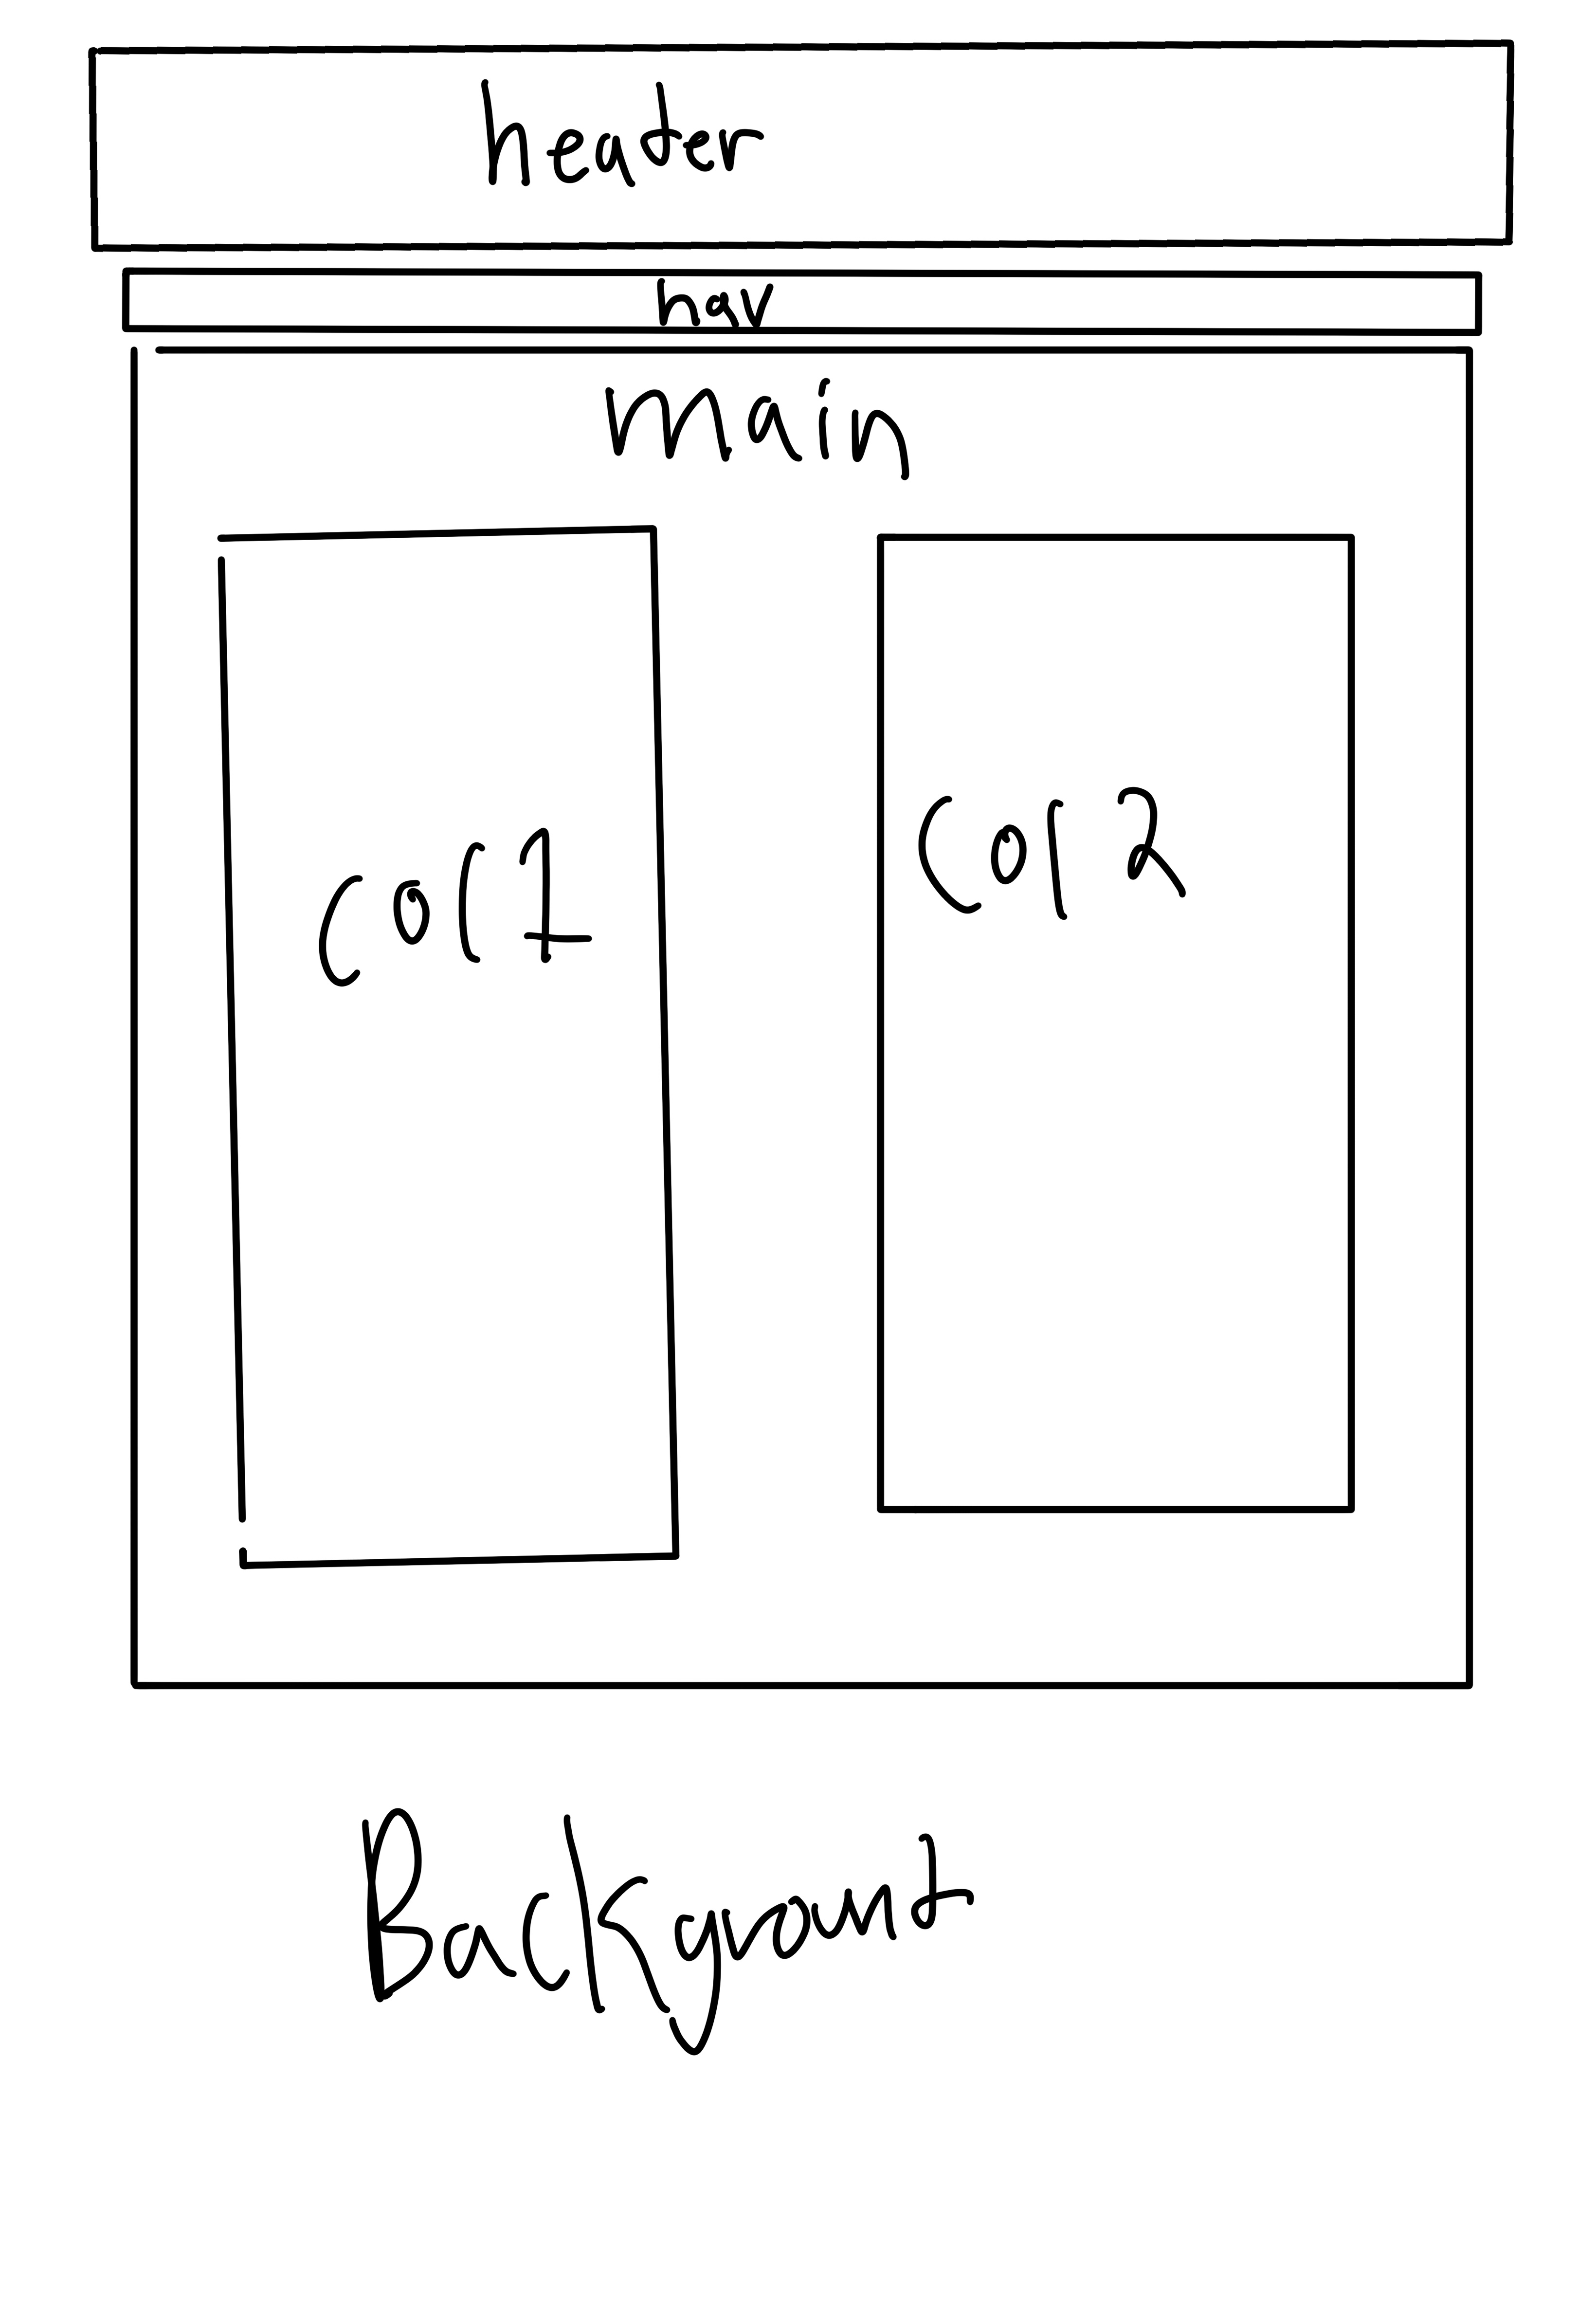 header
nav
main
Col 1
Col 2
Backgrount